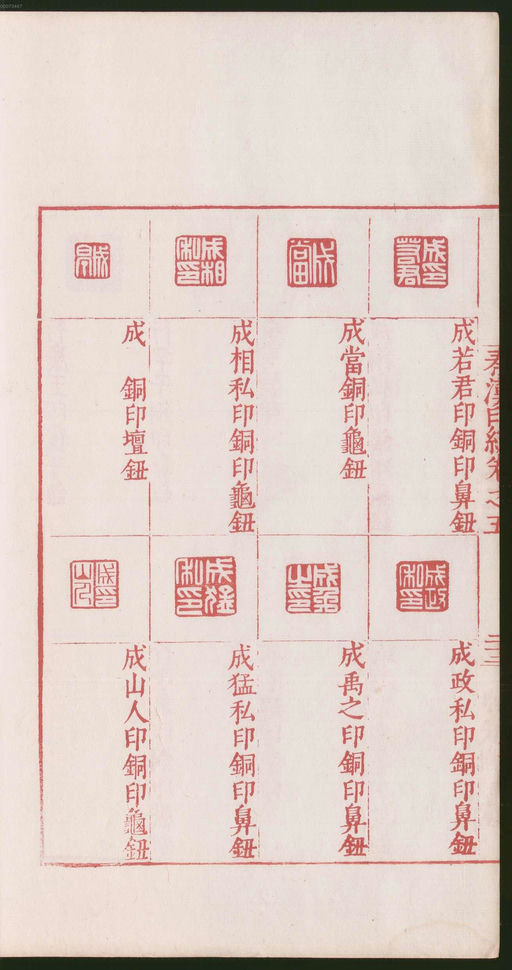 秦漢印統卷之五
二十三
成若君印銅印鼻鈕
成當銅印龜鈕
成相私印銅印龜鈕
成　銅印壇鈕
成政私印銅印鼻鈕
成禹之印銅印鼻鈕
成猛私印銅印鼻鈕
成山人印銅印龜鈕